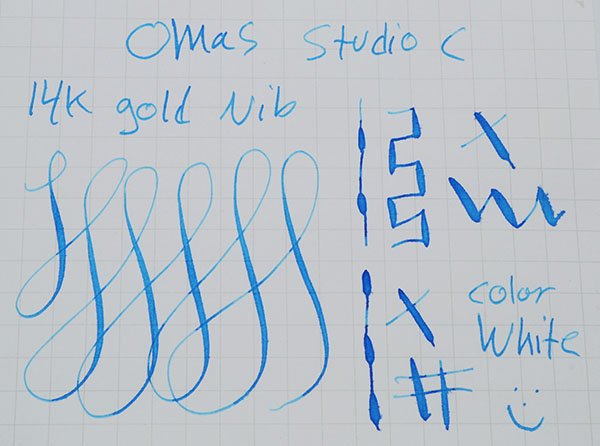 Omas Studio C
14K gold Nib
color
White